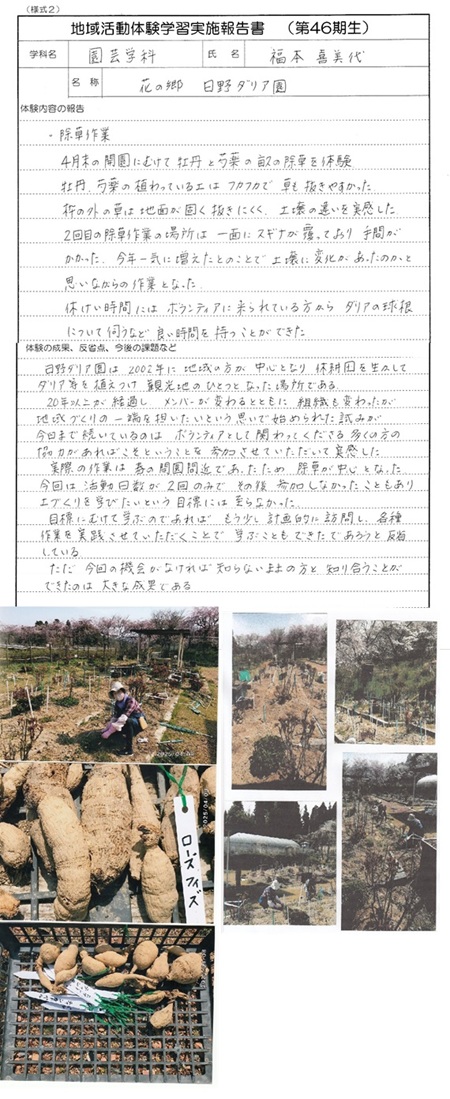 （様式２）
地域活動体験学習実施報告書　（第46期生）
学科名　園芸学科　氏　名　福本 喜美代
名　称　花の郷　日野ダリア園
体験内容の報告
・除草作業
4月末の開園にむけて 牡丹と芍薬の畝の除草を体験
牡丹、芍薬の植わっている土は フカフカで 草も抜きやすかった
枠の外の草は地面が固く抜きにくく、土壌の違いを実感した.
2回目の除草作業の場所は 一面にスギナが覆っており 手間が
かかった. 今年一気に増えたとのことで 土壌に変化があったのかと
思いながらの作業となった.
休けい時間には ボランティアに来られている方から ダリアの球根
について伺うなど 良い時間を持つことができた
体験の成果、反省点、今後の課題など
日野ダリア園は 2002年に 地域の方が 中心となり 休耕田を生かして
ダリア等を植えつけ 観光地のひとつとなった場所である
20年以上が経過し メンバーが変わるとともに 組織も変わったが
地域づくりの一端を担いたいという思いで始められた試みが
今日まで続いているのは ボランティアとして 関わってくださる多くの方の
協力があればこそということを 参加させていただいて実感した
実際の作業は 春の開園間近であったため 除草が中心となった
今回は 活動日数が 2回のみで その後 参加しなかったこともあり
土づくりを学びたいという目標には 至らなかった.
目標にむけて学ぶのであれば もう少し計画的に訪問し、各種
作業を実践させていただくことで 学ぶこともできたであろうと 反省
している
ただ 今回の機会がなければ 知らない土の方と 知り合うことが
できたのは 大きな成果である
ローズフィズ